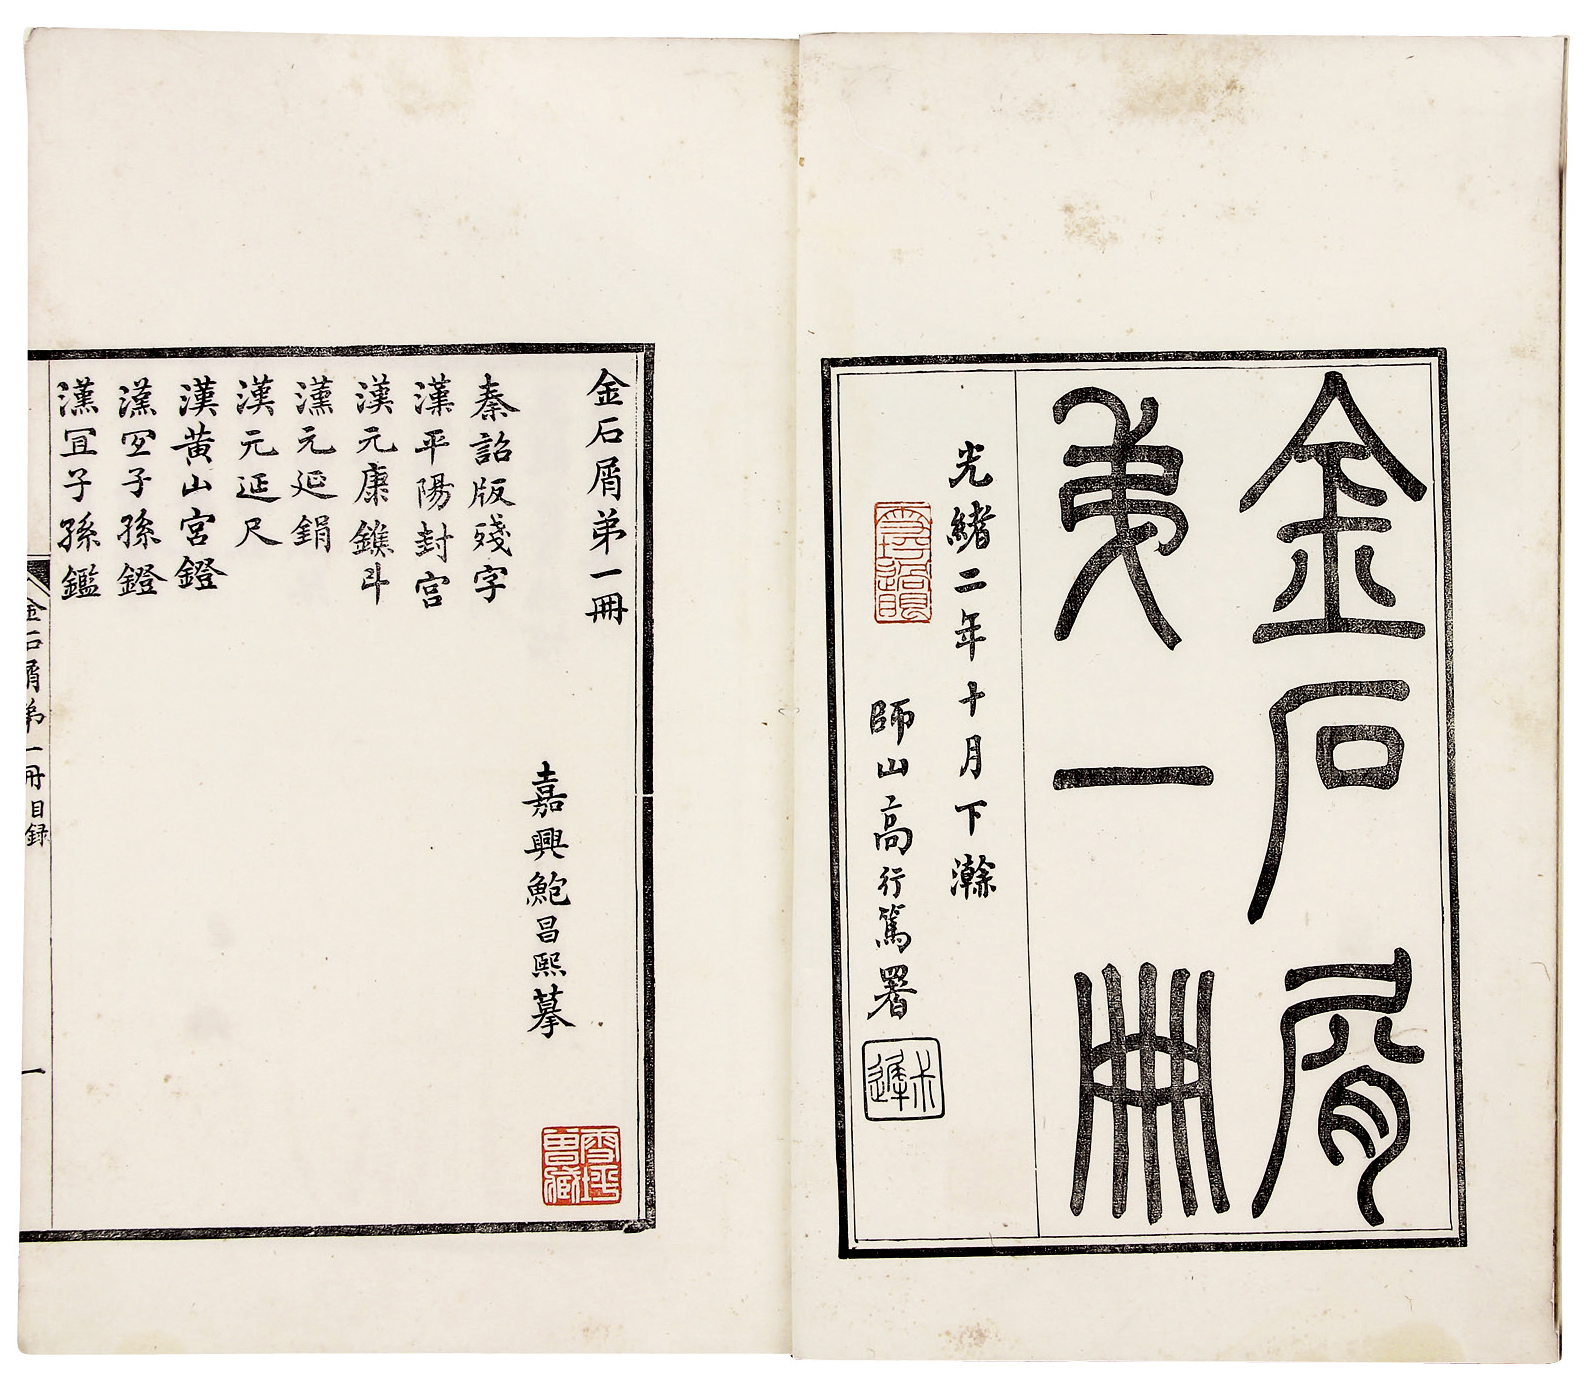 金石屑
弟一冊
光緒二年十月下澣
師山高行篤署
金石屑弟一冊
嘉興鮑昌熙摹
秦詔版殘字
漢平陽封宮
漢元康鐎斗
漢元延鋗
漢元延尺
漢黃山宮鐙
漢宜子孫鐙
漢宜子孫鑑
金石屑弟一冊目錄
一
雪坪曾藏